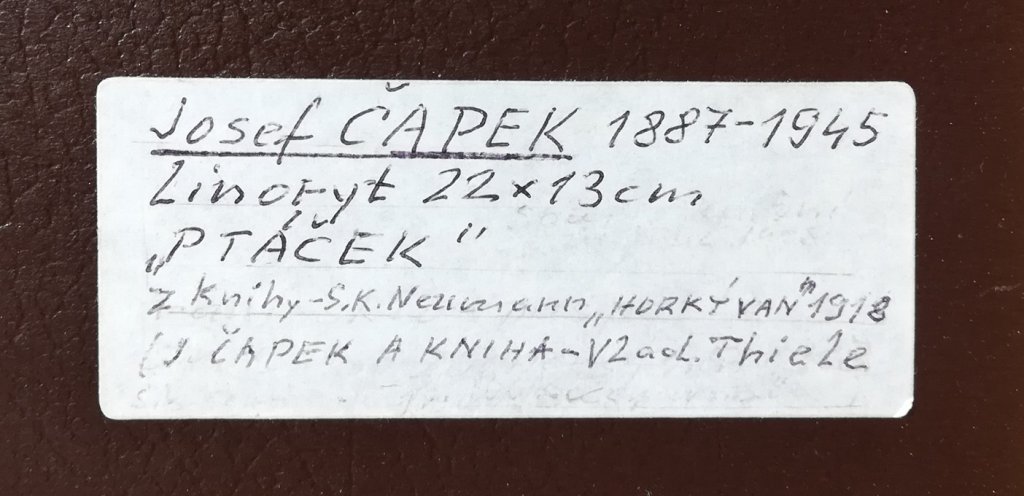 Josef ČAPEK 1887-1945
Linoryt 22x13cm
„PTÁČEK"
z knihy-S.K.Neumann „HORKÝ VAN" 1918
(J. ČAPEK A KNIHA-Vlad. Thiele